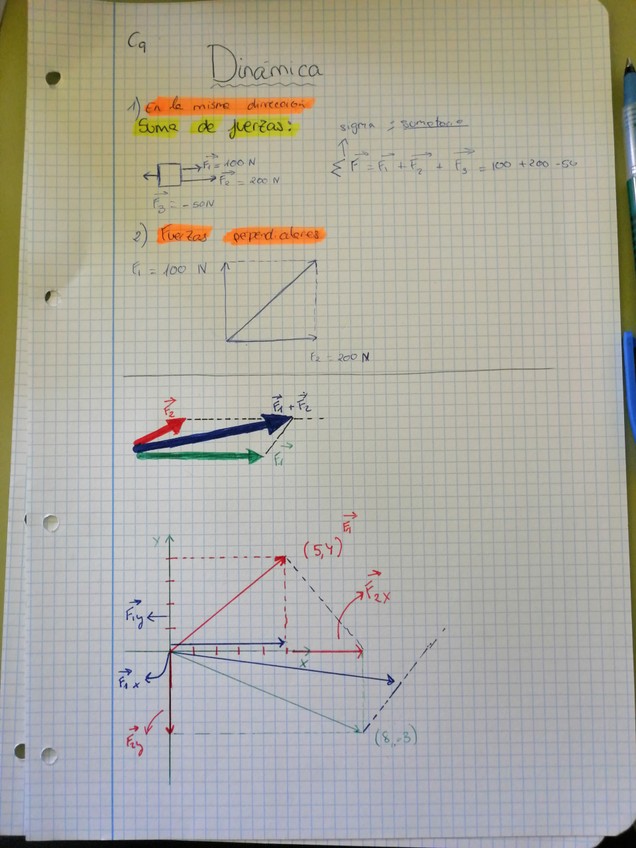 C9
Dinámica
1) En la misma dirección
Suma de fuerzas:
sigma : sumatorio
F₁ = 100 N
F₂ = 200 N
F₃ = -50N
∑ F = F₁ + F₂ + F₃ = 100 + 200 - 50
2) Fuerzas perpendiculares
F₁ = 100 N
F₂ = 200 N
F₂
F₁ + F₂
F₁
y
F₁
(5,4)
F₂x
F₁y
x
F₁x
F₂y
(8,-3)